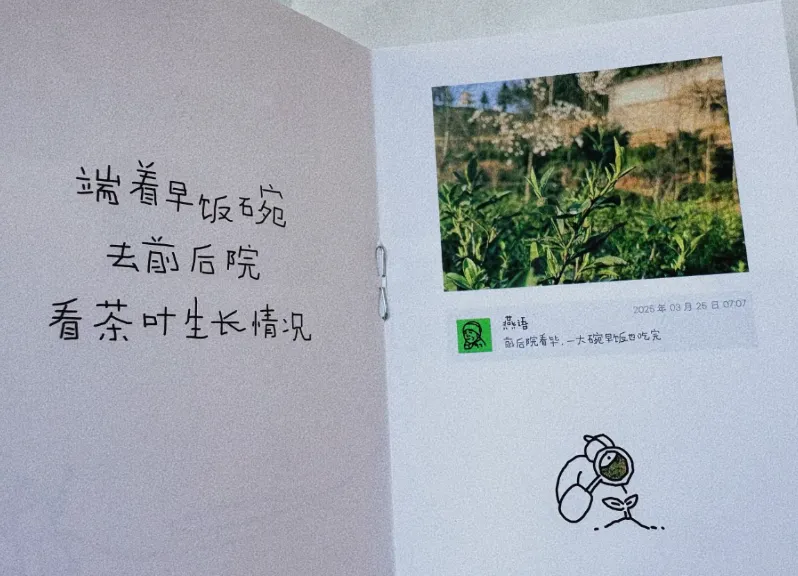 端着早饭碗
去前后院
看茶叶生长情况
2025 年 03 月 26 日 07:07
燕语
前后院看毕，一大碗早饭也吃完